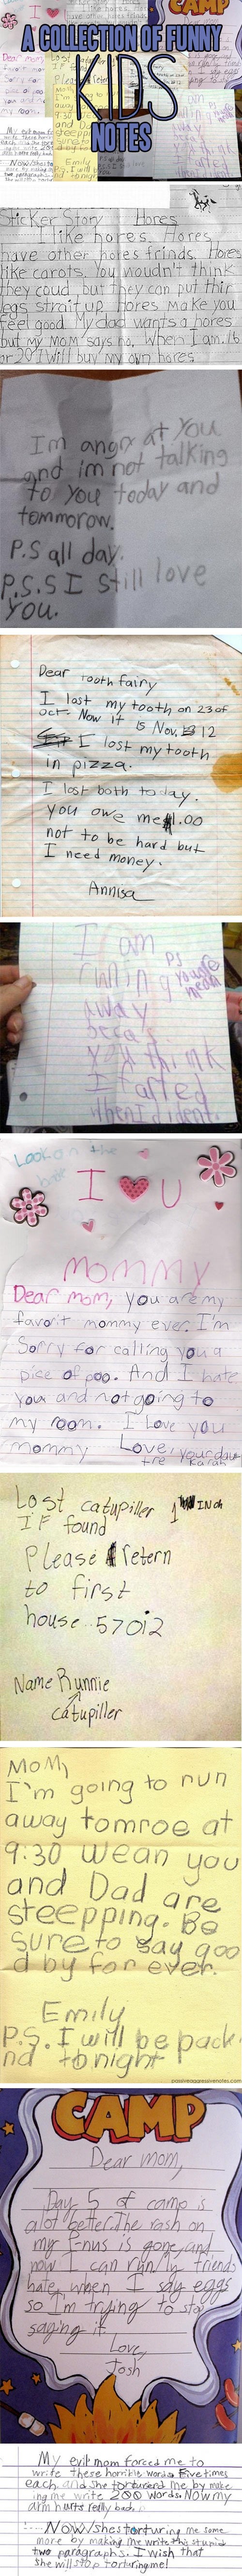 A COLLECTION OF FUNNY
KIDS
NOTES
CAMP
Sticker Story Hores
I like hores. Hores
have other hores frinds. Hores
like carots. You wouldn't think
they coud but they can put thir
legs strait up. Hores make you
feel good. My dad wants a hores
but my Mom says no. When I am 16
or 20 I will buy my own hores
Im angry at You
and im not talking
to You today and
tommorow.
P.S all day.
P.S.S I still love
you.
Dear tooth fairy
I lost my tooth on 23 of
oct. Now it is Nov. 12
I lost my tooth
in pizza.
I lost both today.
you owe me $1.00
not to be hard but
I need money.
Annisa
I am
runing
away
becas
you think
I farted
when I dident.
PS
your
mean
Look on the
back
I U
mommy
Dear mom, you are my
favorit mommy ever. I'm
Sorry for calling you a
pise of poo. And I hate
you and not going to
my room. I love you
mommy Love, your dau
tre Karah
Lost catupiller 1 INch
IF found
Please retern
to first
house 57012
Name Runnie
catupiller
Mom,
I'm going to run
away tomroe at
9:30 wean you
and Dad are
sleepping. Be
sure to say goo
d by for ever.
Emily
P.S. I will be pack
nd tonight
passiveaggressivenotes.com
CAMP
Dear Mom,
Day 5 of camp is
alot better. The rash on
my P-nus is gone, and
now I can run. My friends
hate when I say eggs
so I'm trying to stop
saying it.
Love,
Josh
My evil mom forced me to
write these horrible words five times
each. and she torturend me by make
ing me write 200 words. Now my
arm hurts really bad.
Now/shes torturing me some
more by making me write this stupid
two paragraphs. I wish that
she will stop torturing me!